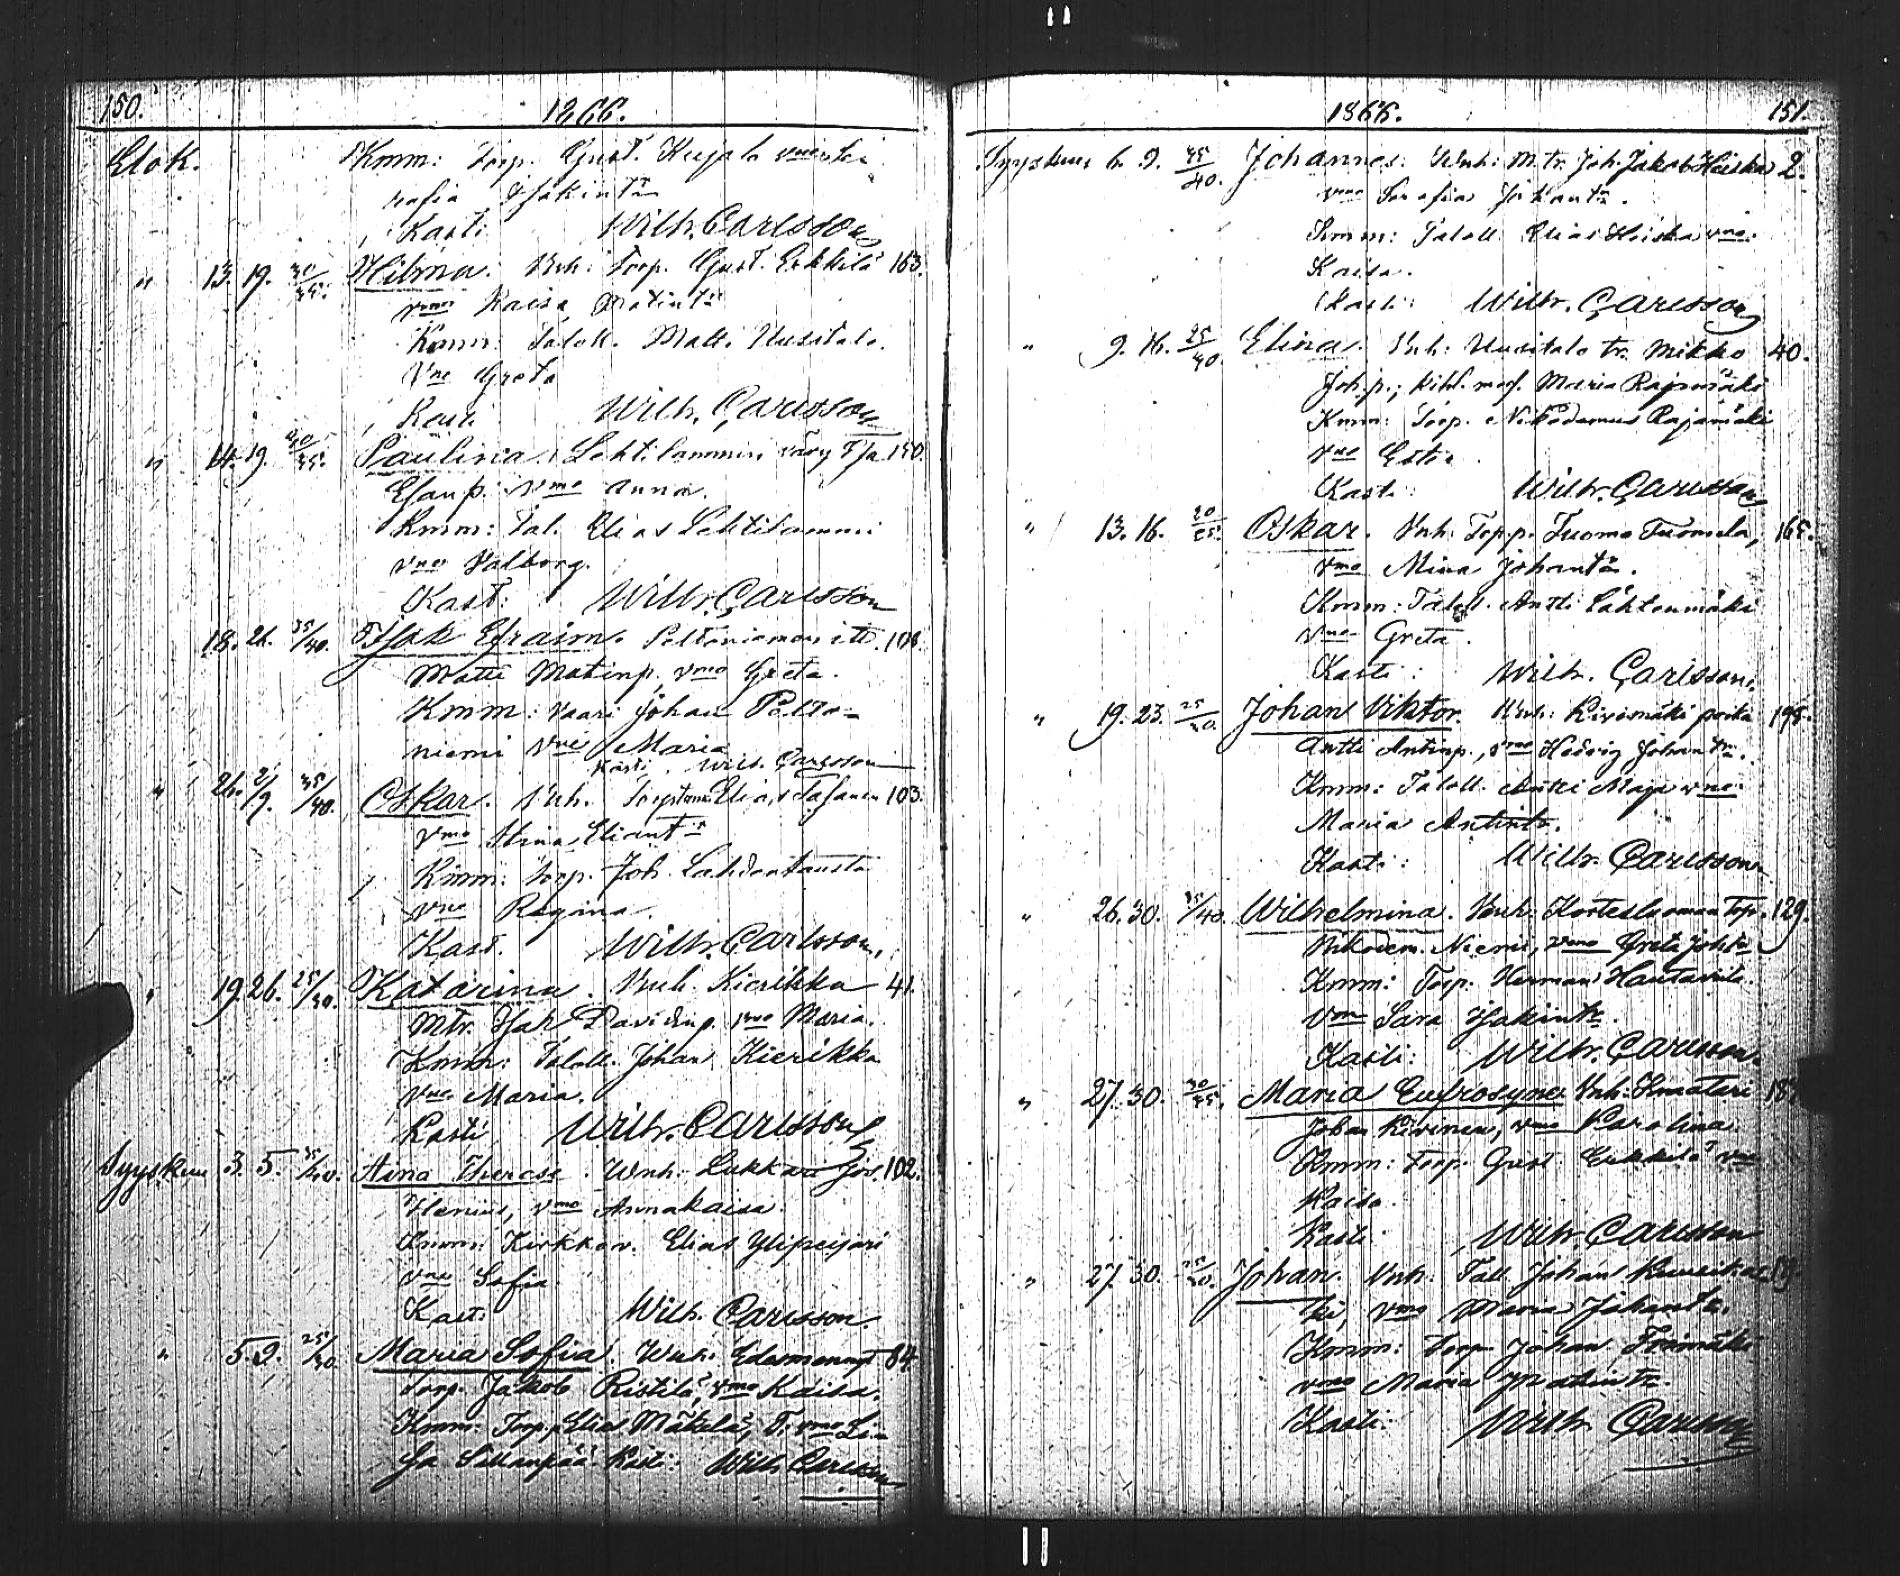 150. 1866.
Elok. Kmm: Torp. Gust. Kujala vmonsa
Kasti Wilh. Carlsson
" 13. 19. 30/35. Hilma. Vnh: Torp. Gust. Erkkilä 163.
vmo Kaisa Matintr
Kmm: Taloll. Matti Uusitalo.
Vne Greta
Kasti Wilh. Carlsson
" 14. 19. 30/35. Paulina. Lehtilammin vävy 150.
Esaup. Vmo Anna.
Kmm: Tal. Elias Lehtilammi
vne Valborg.
Kast: Wilh. Carlsson
18. 26. 35/40. Isak Efraim. Peltoniemen itt. 108.
Matti Matinp. vmo Greta.
Kmm: Vaari Johan Pelto-
niemi Vne Maria
Kasti Wilh. Carlsson
" 26. 2/9. 35/40. Oskar. Vnh. Elias 103.
vmo Stina Eliant
Kmm: Torp. Joh. Lahdentausta
vne Regina.
Kast. Wilh. Carlsson.
" 19. 26. 25/30. Katarina. Vnh. Kierikka 41.
Mtr. Isak Davidinp. vmo Maria.
Kmm: Taloll. Johan Kierikka
Vne Maria.
Kasti Wilh. Carlsson
Syyskuu 3. 5. 35/40. Aina Therese. Wnh: Lukkari 102.
Henius, vmo Annakaisa.
Kmm: Kirkkov. Elias Ylipeijari
vne Sofia
Kast: Wilh. Carlsson
" 5. 9. 25/30. Maria Sofia. Wnh: 84
Torp. Jakob Ristilä, vmo Kaisa.
Kmm: Torp. Elias Mäkelä, T. vmo Li-
sa Sillanpää Kasti: Wilh. Carlsson
1866. 151.
Syyskuu 6. 9. 35/40. Johannes. Vnh: M.tr. Joh. Jakob Heiska 2.
vmo Serafia Johantr.
Kmm: Taloll. Elias Heiska vne
Kaisa.
Kasti: Wilh. Carlsson
" 9. 16. 25/40. Elina. Vnh: Uusitalo tr. Mikko 40.
Joh.p.; Maria Rajamäki
Kmm: Torp. Nikodemus Rajamäki
vne Ester
Kasti: Wilh. Carlsson
" 13. 16. 20/25. Oskar. Vnh: Torpp. Tuomo Tuomela, 165.
vmo Mina Johantr.
Kmm: Taloll. Antti Lähteenmäki
vmo Greta.
Kasti: Wilh. Carlsson.
" 19. 23. 25/30. Johan Viktor. Vnh: Kivimäki poika 195.
Antti Antinp., vmo Hedvig Johantr.
Kmm: Taloll. Antti Maja vne
Maria Antintr.
Kasti: Wilh. Carlsson
" 26. 30. 35/40. Wilhelmina. Vnh: Kortesluoman Torp. 129.
Nikodem. Niemi, vmo Greta Joht
Kmm: Torp. Herman Hautaviita
Vmo Sara Isakintr.
Kasti: Wilh. Carlsson.
" 27. 30. 30/35. Maria Eufrosyne. Vnh: 187
Johan Kivinen, vmo Karolina.
Kmm: Torp. Gust. Erkkilä vne
Kaisa.
Kasti Wilh. Carlsson
" 27. 30. 25/30. Johan. Vnh: Tall. Johan
ki, vmo Maria Johantr.
Kmm: Torp. Johan
vmo Maria
Kasti: Wilh. Carlsson